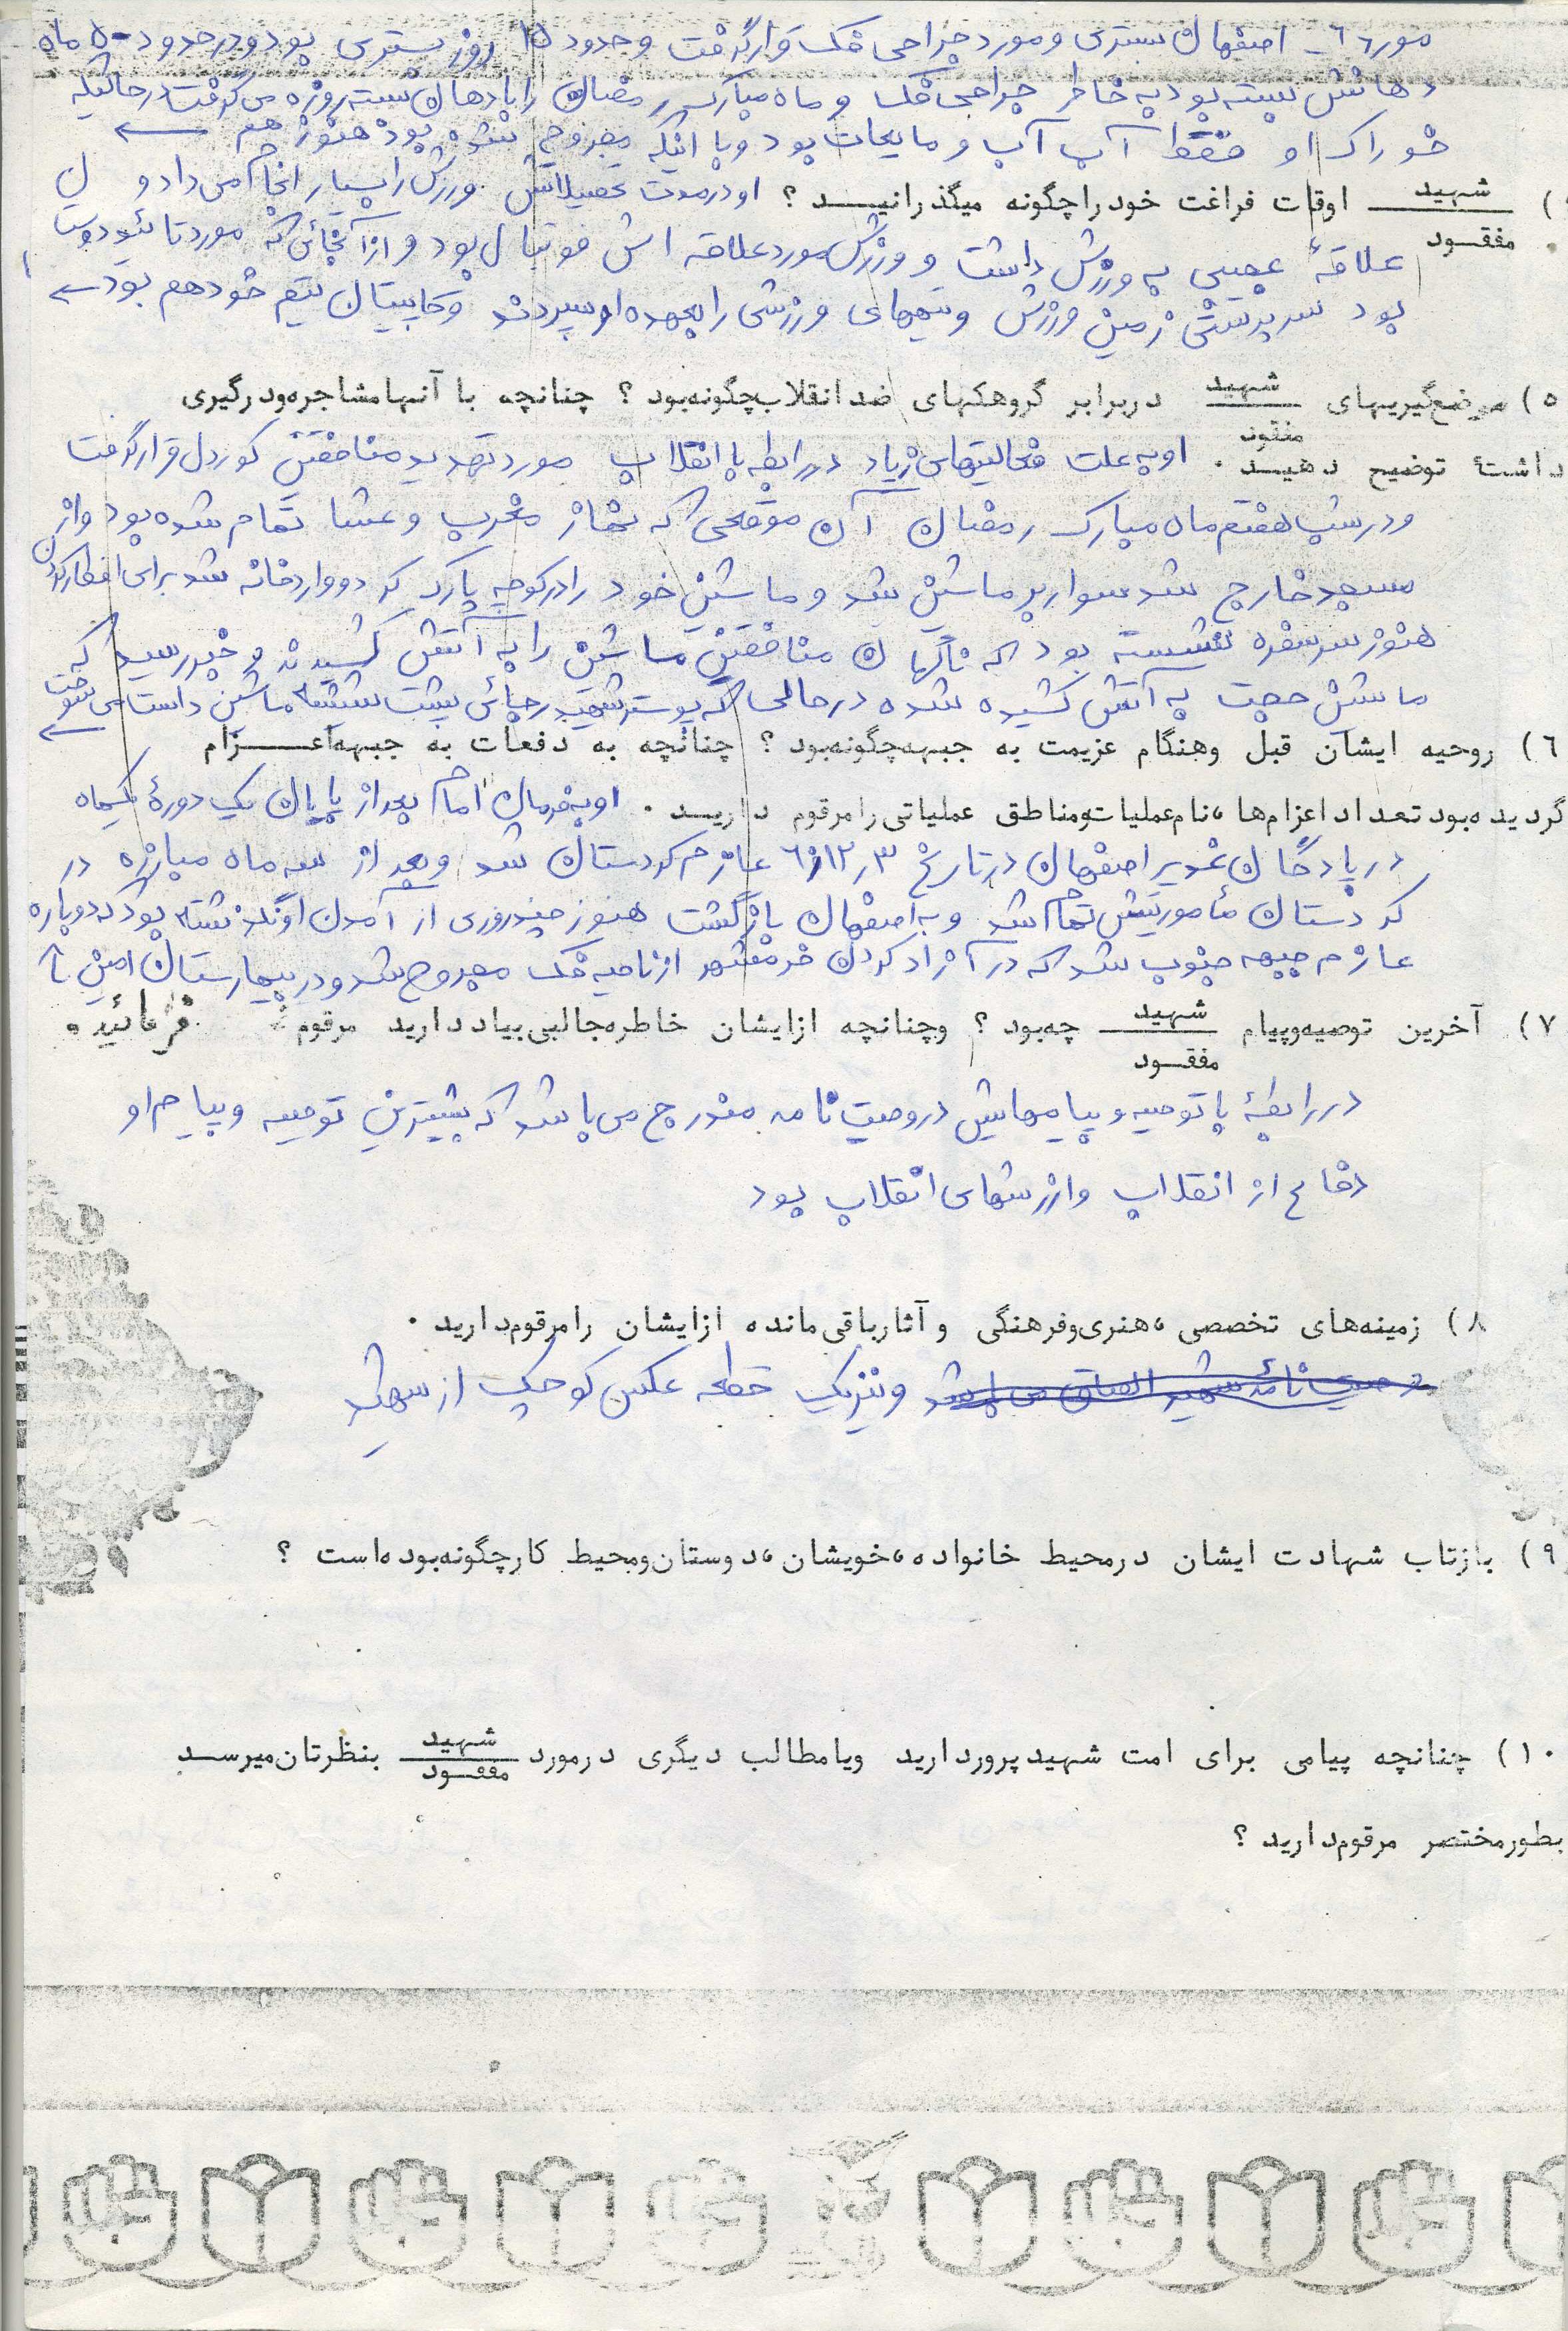 اصفهان بستری و مورد جراحی فک قرار گرفت و حدود ۱۵ روز بستری بود و در حدود ۵۰ ماه
دهانش بسته بود به خاطر جراحی فک و ماه مبارک رمضان را با دهان بسته روزه می گرفت در حالیکه
خوراک او فقط آب آب و مایعات بود و با اینکه مجروح شده بود هنوز هم
شهید
مفقود
اوقات فراغت خود را چگونه میگذرانید ؟ او در مدت تحصیلاتش ورزش را بسیار انجام می داد و
علاقهٔ عجیبی به ورزش داشت و ورزش مورد علاقه اش فوتبال بود و از آنجائی که مورد تائید دوستان
بود سرپرستی زمین ورزش و تیمهای ورزشی را بعهده او سپردند و کاپیتان تیم خود هم بود
۵) موضع‌گیریهای شهید
مفقود
دربرابر گروهکهای ضد انقلاب چگونه بود ؟ چنانچه با آنها مشاجره و درگیری
داشتهٔ توضیح دهید . او به علت فعالیتهای زیاد در رابطه با انقلاب مورد تهدید منافقین کوردل قرار گرفت
و در شب هفتم ماه مبارک رمضان آن موقعی که نماز مغرب و عشا تمام شده بود و از
مسجد خارج شد سوار بر ماشین شد و ماشین خود را در کوچه پارک کرد و وارد خانه شد برای افطار کردن
هنوز سر سفره نشسته بود که ناگهان منافقین ماشین را به آتش کشیدند و خبر رسید که
ماشین حجت به آتش کشیده شده در حالی که پوستر شهید رجائی پشت شیشه ماشین داشت می سوخت
۶) روحیه ایشان قبل و هنگام عزیمت به جبهه چگونه بود ؟ چنانچه به دفعات به جبهه اعزام
گردیده بود تعداد اعزام‌ها ، نام عملیات و مناطق عملیاتی را مرقوم دارید . او به فرمان امام بعد از پایان یک دورهٔ یکماه
در پادگان غدیر اصفهان در تاریخ ۶۰٫۱۲٫۳ عازم کردستان شد و بعد از سه ماه مبارزه در
کردستان مأموریتش تمام شد و به اصفهان بازگشت هنوز چند روزی از آمدن او نگذشته بود که دوباره
عازم جبهه جنوب شد که در آزاد کردن خرمشهر از ناحیه فک مجروح شد و در بیمارستان امین
۷) آخرین توصیه و پیام شهید
مفقود
چه بود ؟ و چنانچه از ایشان خاطره جالبی بیاد دارید مرقوم فرمائید .
در رابطهٔ با توصیه و پیامهایش در وصیت نامه مندرج می باشد که بیشترین توصیه و پیام او
دفاع از انقلاب و ارزشهای انقلاب بود
۸) زمینه‌های تخصصی ، هنری و فرهنگی و آثار باقی مانده از ایشان را مرقوم دارید .
و نیز یک قطعه عکس کوچک از شهید
۹) بازتاب شهادت ایشان در محیط خانواده ، خویشان ، دوستان و محیط کار چگونه بوده است ؟
۱۰) چنانچه پیامی برای امت شهید پرور دارید و یا مطالب دیگری در مورد شهید
مفقود
بنظرتان میرسد
بطور مختصر مرقوم دارید ؟